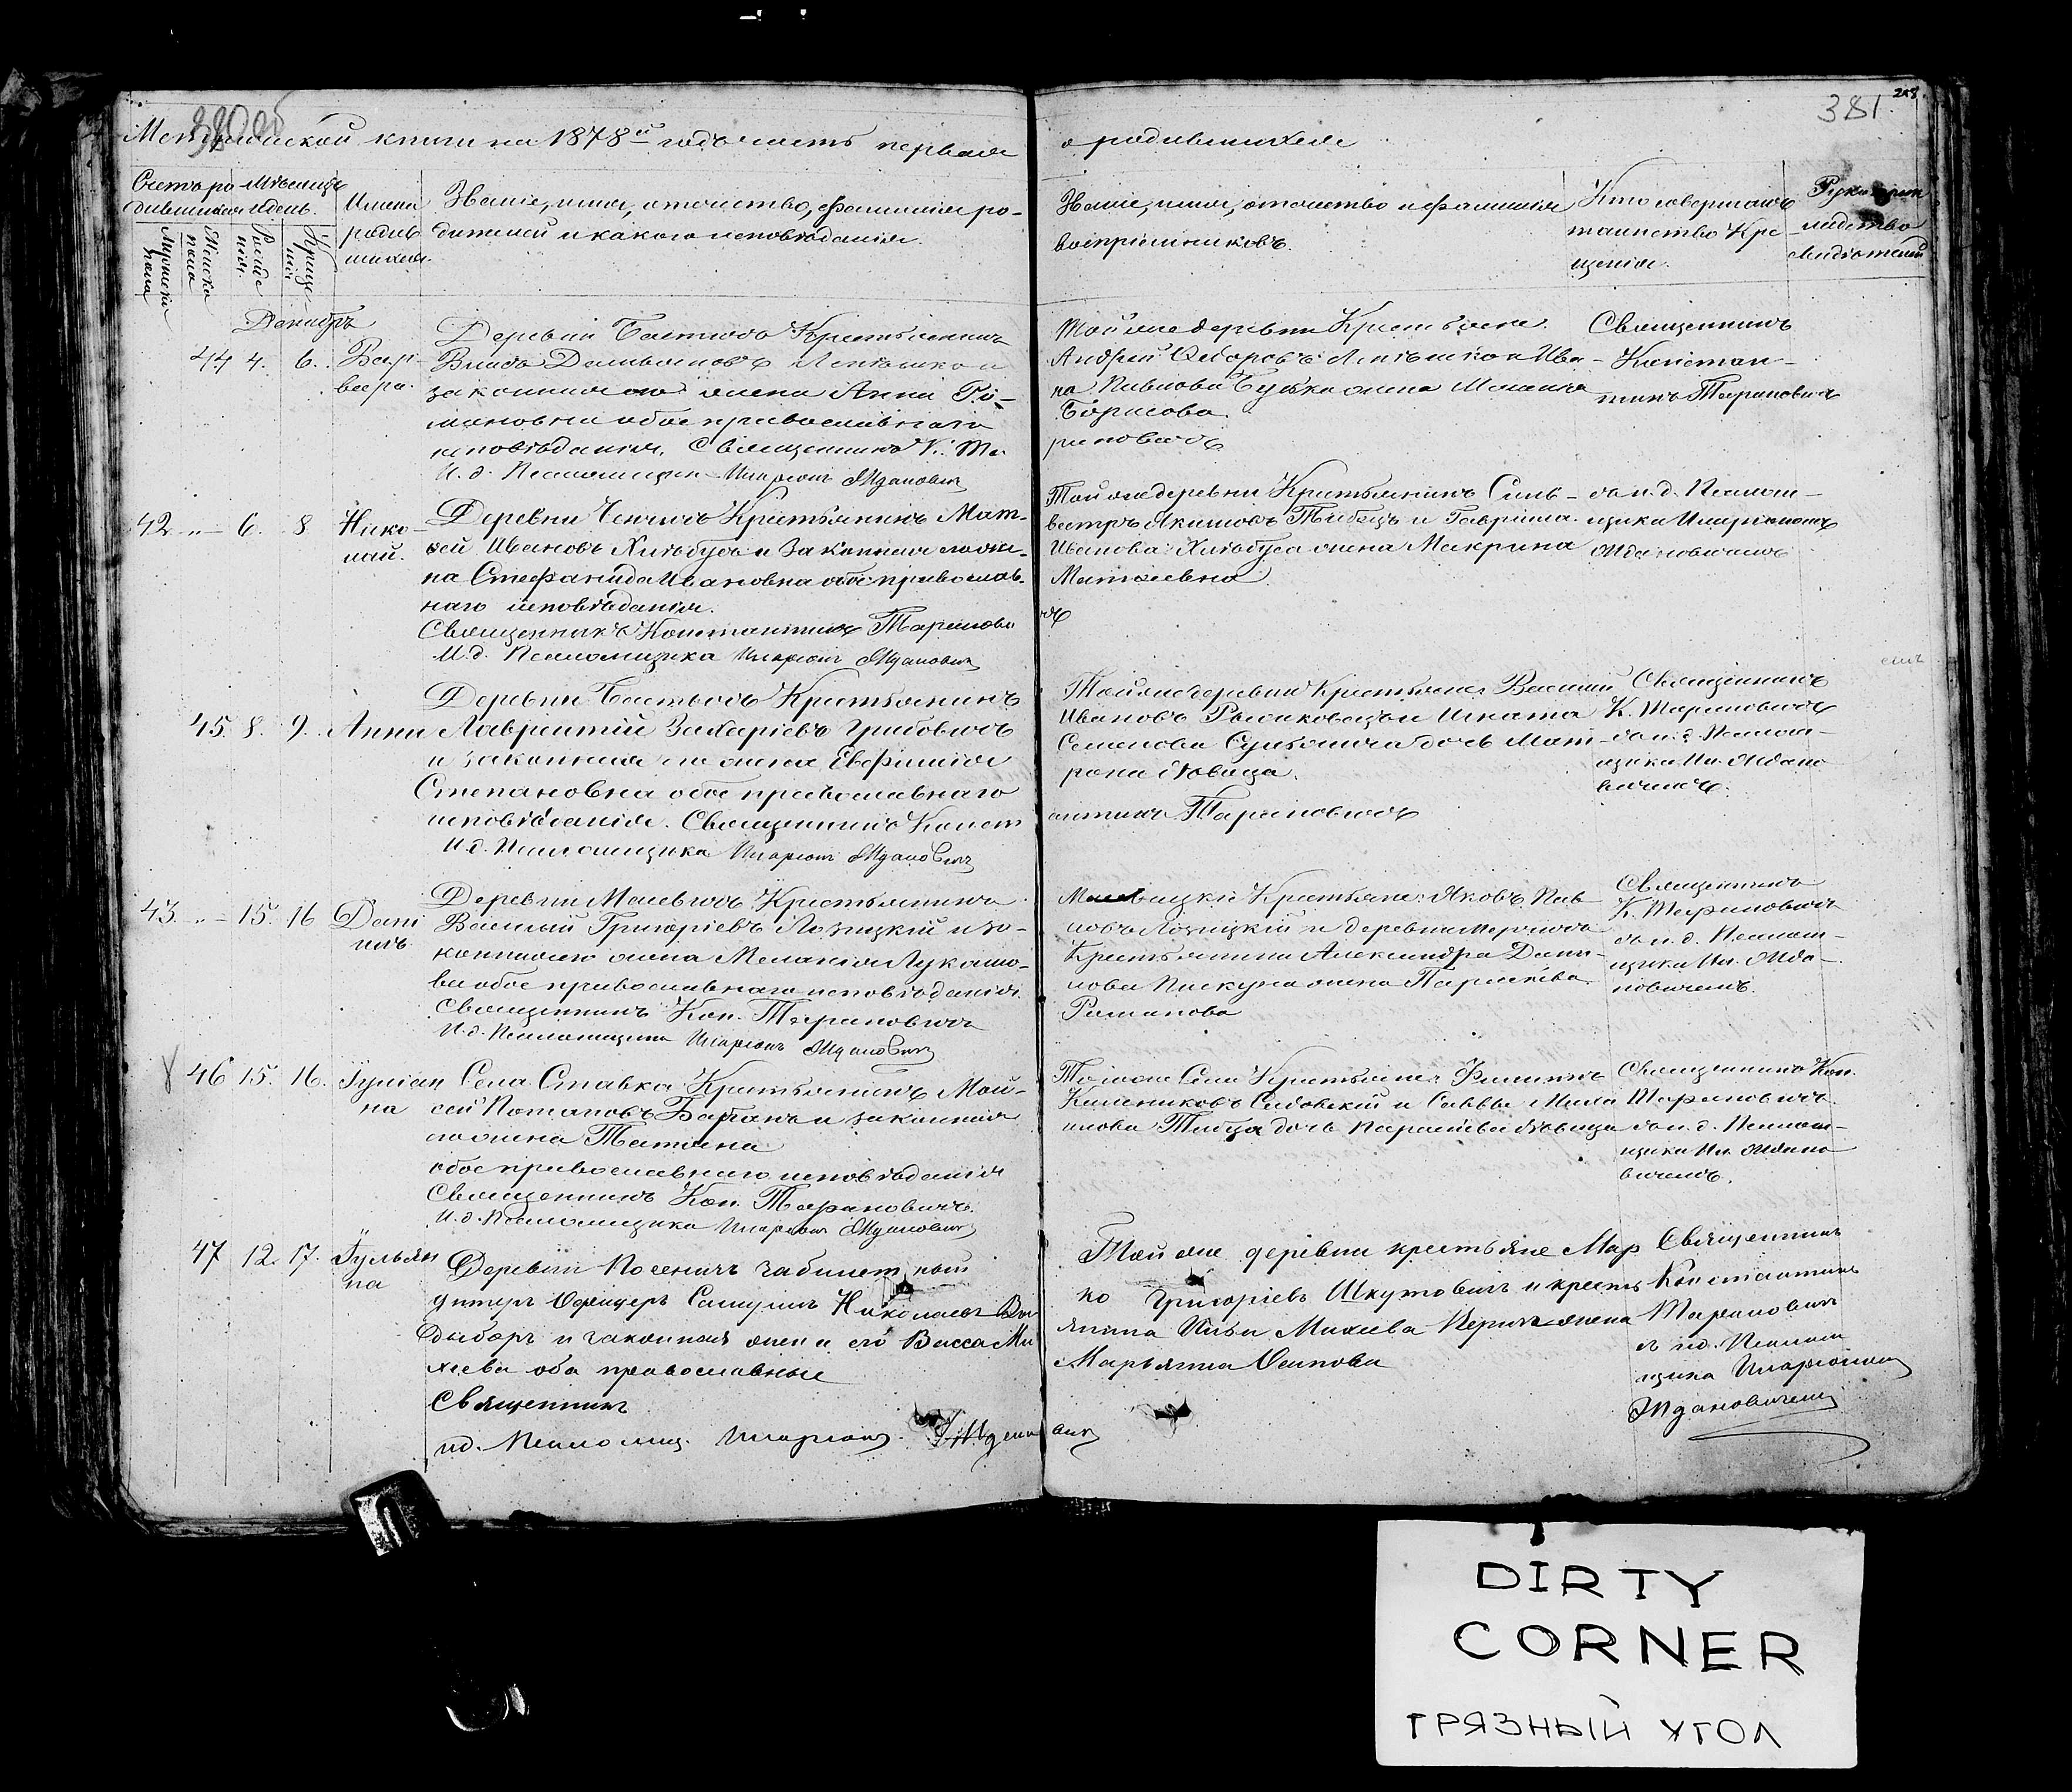 381
Метрической книги на 1878й годъ часть первая
о родившихся
Счетъ ро Мѣсяцъ
дившихся и день.
Мужеска
пола
Женска
пола
Рожде
нія.
Креще
нія
Имена
родив
шихся.
Званіе, имя, отчество, фамилія ро-
дителей и какого исповѣданія.
Званіе, имя, отчество и фамилія
воспріемниковъ.
Кто совершалъ
таинство Кре
щенія.
Рукоприк
ладство
свидѣтелей
Декабрь
44 4. 6. Вар
вара.
Деревни Крестьянинъ
Власъ Демьяновъ Лепешко и
законная его жена Анна Ро-
мановна обое православнаго
исповѣданія. Священникъ К. Та-
И. д. Псаломщик Иларіонъ Жданович
Той же деревни Крестьяне
Андрей Лепешко и Ива-
на Павлова жена
Борисова.
рановичъ
Священникъ
Констан-
тинъ Тарановичъ
42 „ — 6. 8 Нико-
лай.
Деревни Крестьянинъ Мат-
вей Ивановъ Хитьбудъ и законная его же-
на Стефанида Ивановна обое православ-
наго исповѣданія.
Священникъ Константинъ Таранови
И. д. Псаломщика Иларіонъ Жданович
Той же деревни Крестьянинъ Силь-
вестръ Якимовъ и Гавріила
Иванова жена Макрина
Матвеевна
чъ
съ и. д. Псалом-
щика Иларіономъ
Ждановичемъ
45. 8. 9. Анна
Деревни Крестьянинъ
Лаврентій Захаріевъ Грибовичъ
и законная его жена Евфимія
Степановна обое православнаго
исповѣданія. Священникъ Конст
И. д. Псаломщика Иларіонъ Жданович
Той же деревни Крестьяне Василій
Ивановъ и Игната
Семенова дочь Мат-
рона дѣвица.
антинъ Тарановичъ
Священникъ
К. Тарановичъ
съ и. д. Псалом-
щика Ил. Ждано
вичемъ.
43. „ — 15. 16 Дані
илъ
Деревни Малевичъ Крестьянинъ
Василій Григоріевъ Лозицкій и за-
конная его жена Меланія Лукашо-
ва обое православнаго исповѣданія.
Священникъ Кон. Тарановичъ
И. д. Псаломщика Иларіонъ Жданович
Крестьяне: Яковъ Пав
ловъ Лозицкій и деревни
Крестьянина Александра Дани-
лова Пискуна жена Параскева
Романова
Священникъ
К. Тарановичъ
съ и. д. Псалом-
щика Ил. Жда-
новичемъ.
46 15. 16. Іуліан
на
Села Ставка Крестьянинъ Мои-
сей Потаповъ Баранъ и законная
его жена Татіана
обое православнаго исповѣданія
Священникъ Кон. Тарановичъ.
И. д. Псаломщика Иларіон Жданович
Того же Села Крестьяне: Филиппъ
и Саввы Миха
илова дочь Параскева дѣвица
Священникъ Кон.
Тарановичъ
съ и. д. Псалом-
щика Ил. Ждано
вичемъ.
47 12. 17. Іульян
на
Деревни Посеничъ билет ный
унтеръ Офицеръ Самуилъ Николаевъ
и законная жена его Васса Ми
хеева оба православные
Священникъ
ид. Псаломщ. Иларіонъ Ждано
Той же деревни крестьяне Мар
ко Григоріевъ Шкутовичъ и кресть
янина Ильи Михеева жена
Марьянна Осипова
вич
Священник
Константинъ
Тарановичъ
съ ид. Псалом
щика Иларіономъ
Ждановичемъ
DIRTY
CORNER
ГРЯЗНЫЙ УГОЛ